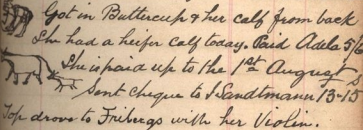 Got in Buttercup & her calf from back
She had a heifer calf today. Paid Adela 5/6
She is paid up to the 1st August.
Sent cheque to J Sandtmann 13-15
Top drove to Fribergs with her Violin.